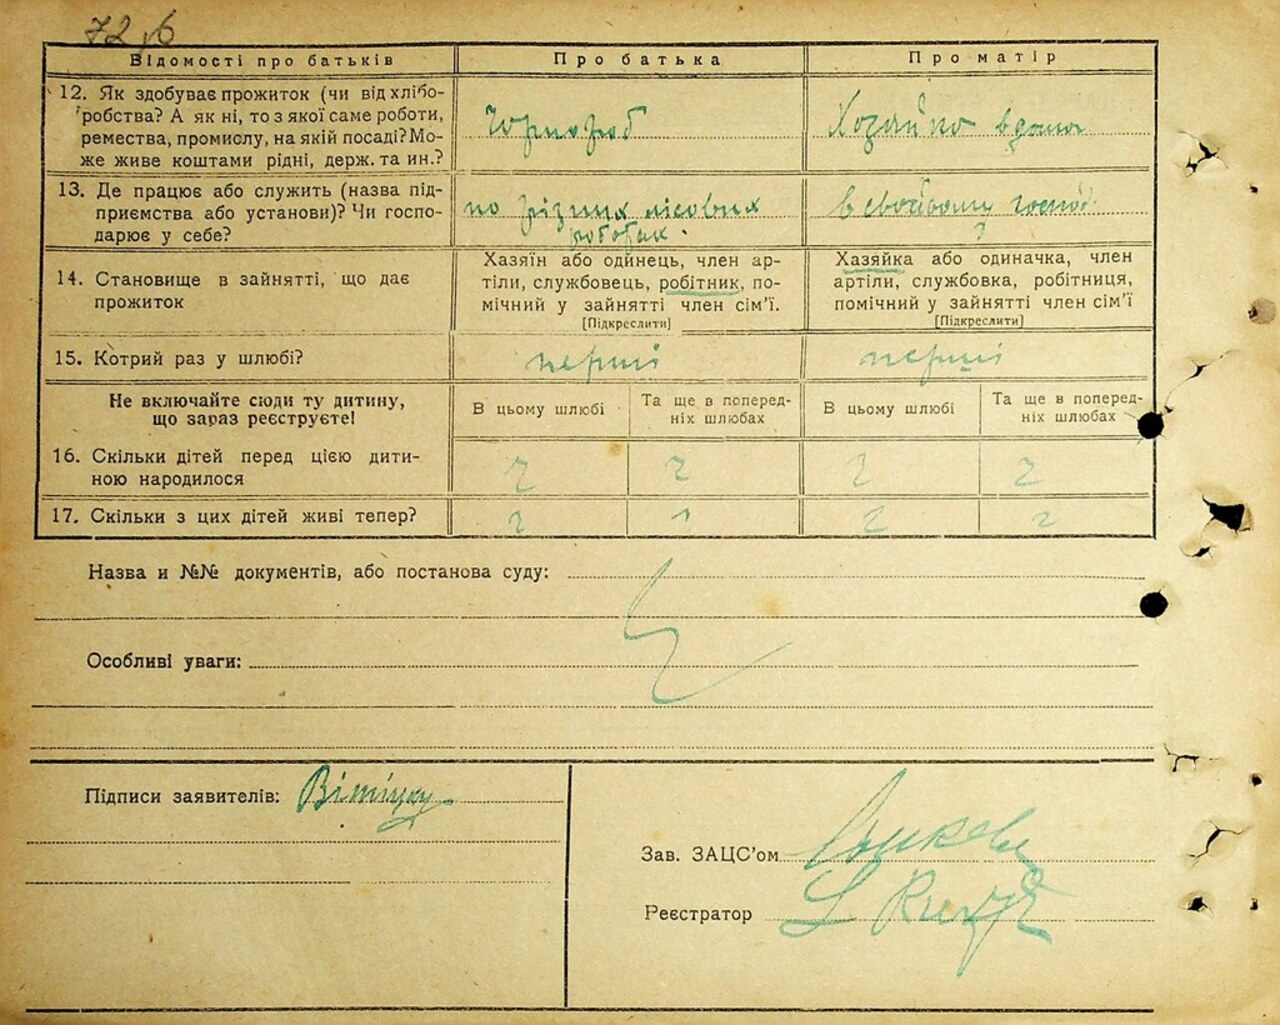 72 уб
Відомості про батьків Про батька Про матір
12. Як здобуває прожиток (чи від хлібо-
робства? А як ні, то з якої саме роботи,
ремества, промислу, на якій посаді? Мо-
же живе коштами рідні, держ. та ин.?
Чорнороб Хозяйка вдома
13. Де працює або служить (назва під-
приємства або установи)? Чи госпо-
дарює у себе?
по різних лісових
роботах.
в свойому господ.
14. Становище в зайнятті, що дає
прожиток
Хазяїн або одинець, член ар-
тіли, службовець, робітник, по-
мічний у зайнятті член сім'ї.
[Підкреслити]
Хазяйка або одиначка, член
артіли, службовка, робітниця,
помічний у зайнятті член сім'ї
[Підкреслити]
15. Котрий раз у шлюбі? перші перші
Не включайте сюди ту дитину,
що зараз реєструєте!
В цьому шлюбі
Та ще в поперед-
ніх шлюбах
В цьому шлюбі
Та ще в поперед-
ніх шлюбах
16. Скільки дітей перед цією дити-
ною народилося
17. Скільки з цих дітей живі тепер?
Назва и №№ документів, або постанова суду:
Особливі уваги:
Підписи заявителів:
Зав. ЗАЦС'ом
Реєстратор